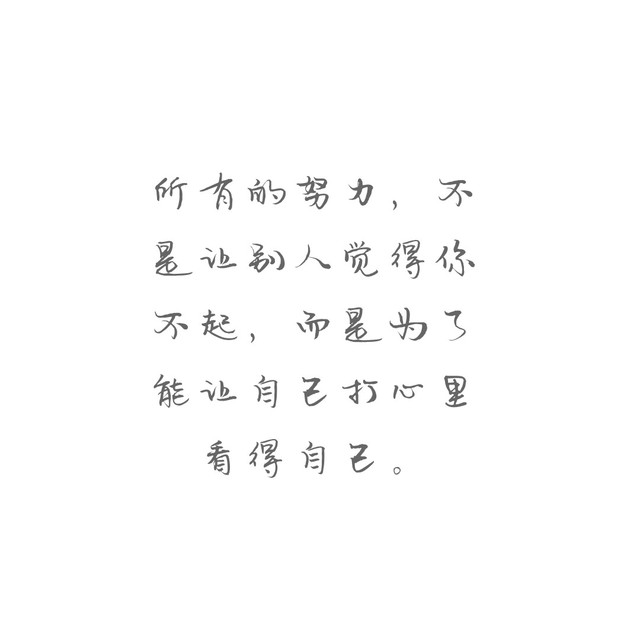 所有的努力，不
是让别人觉得你
不起，而是为了
能让自己打心里
看得自己。